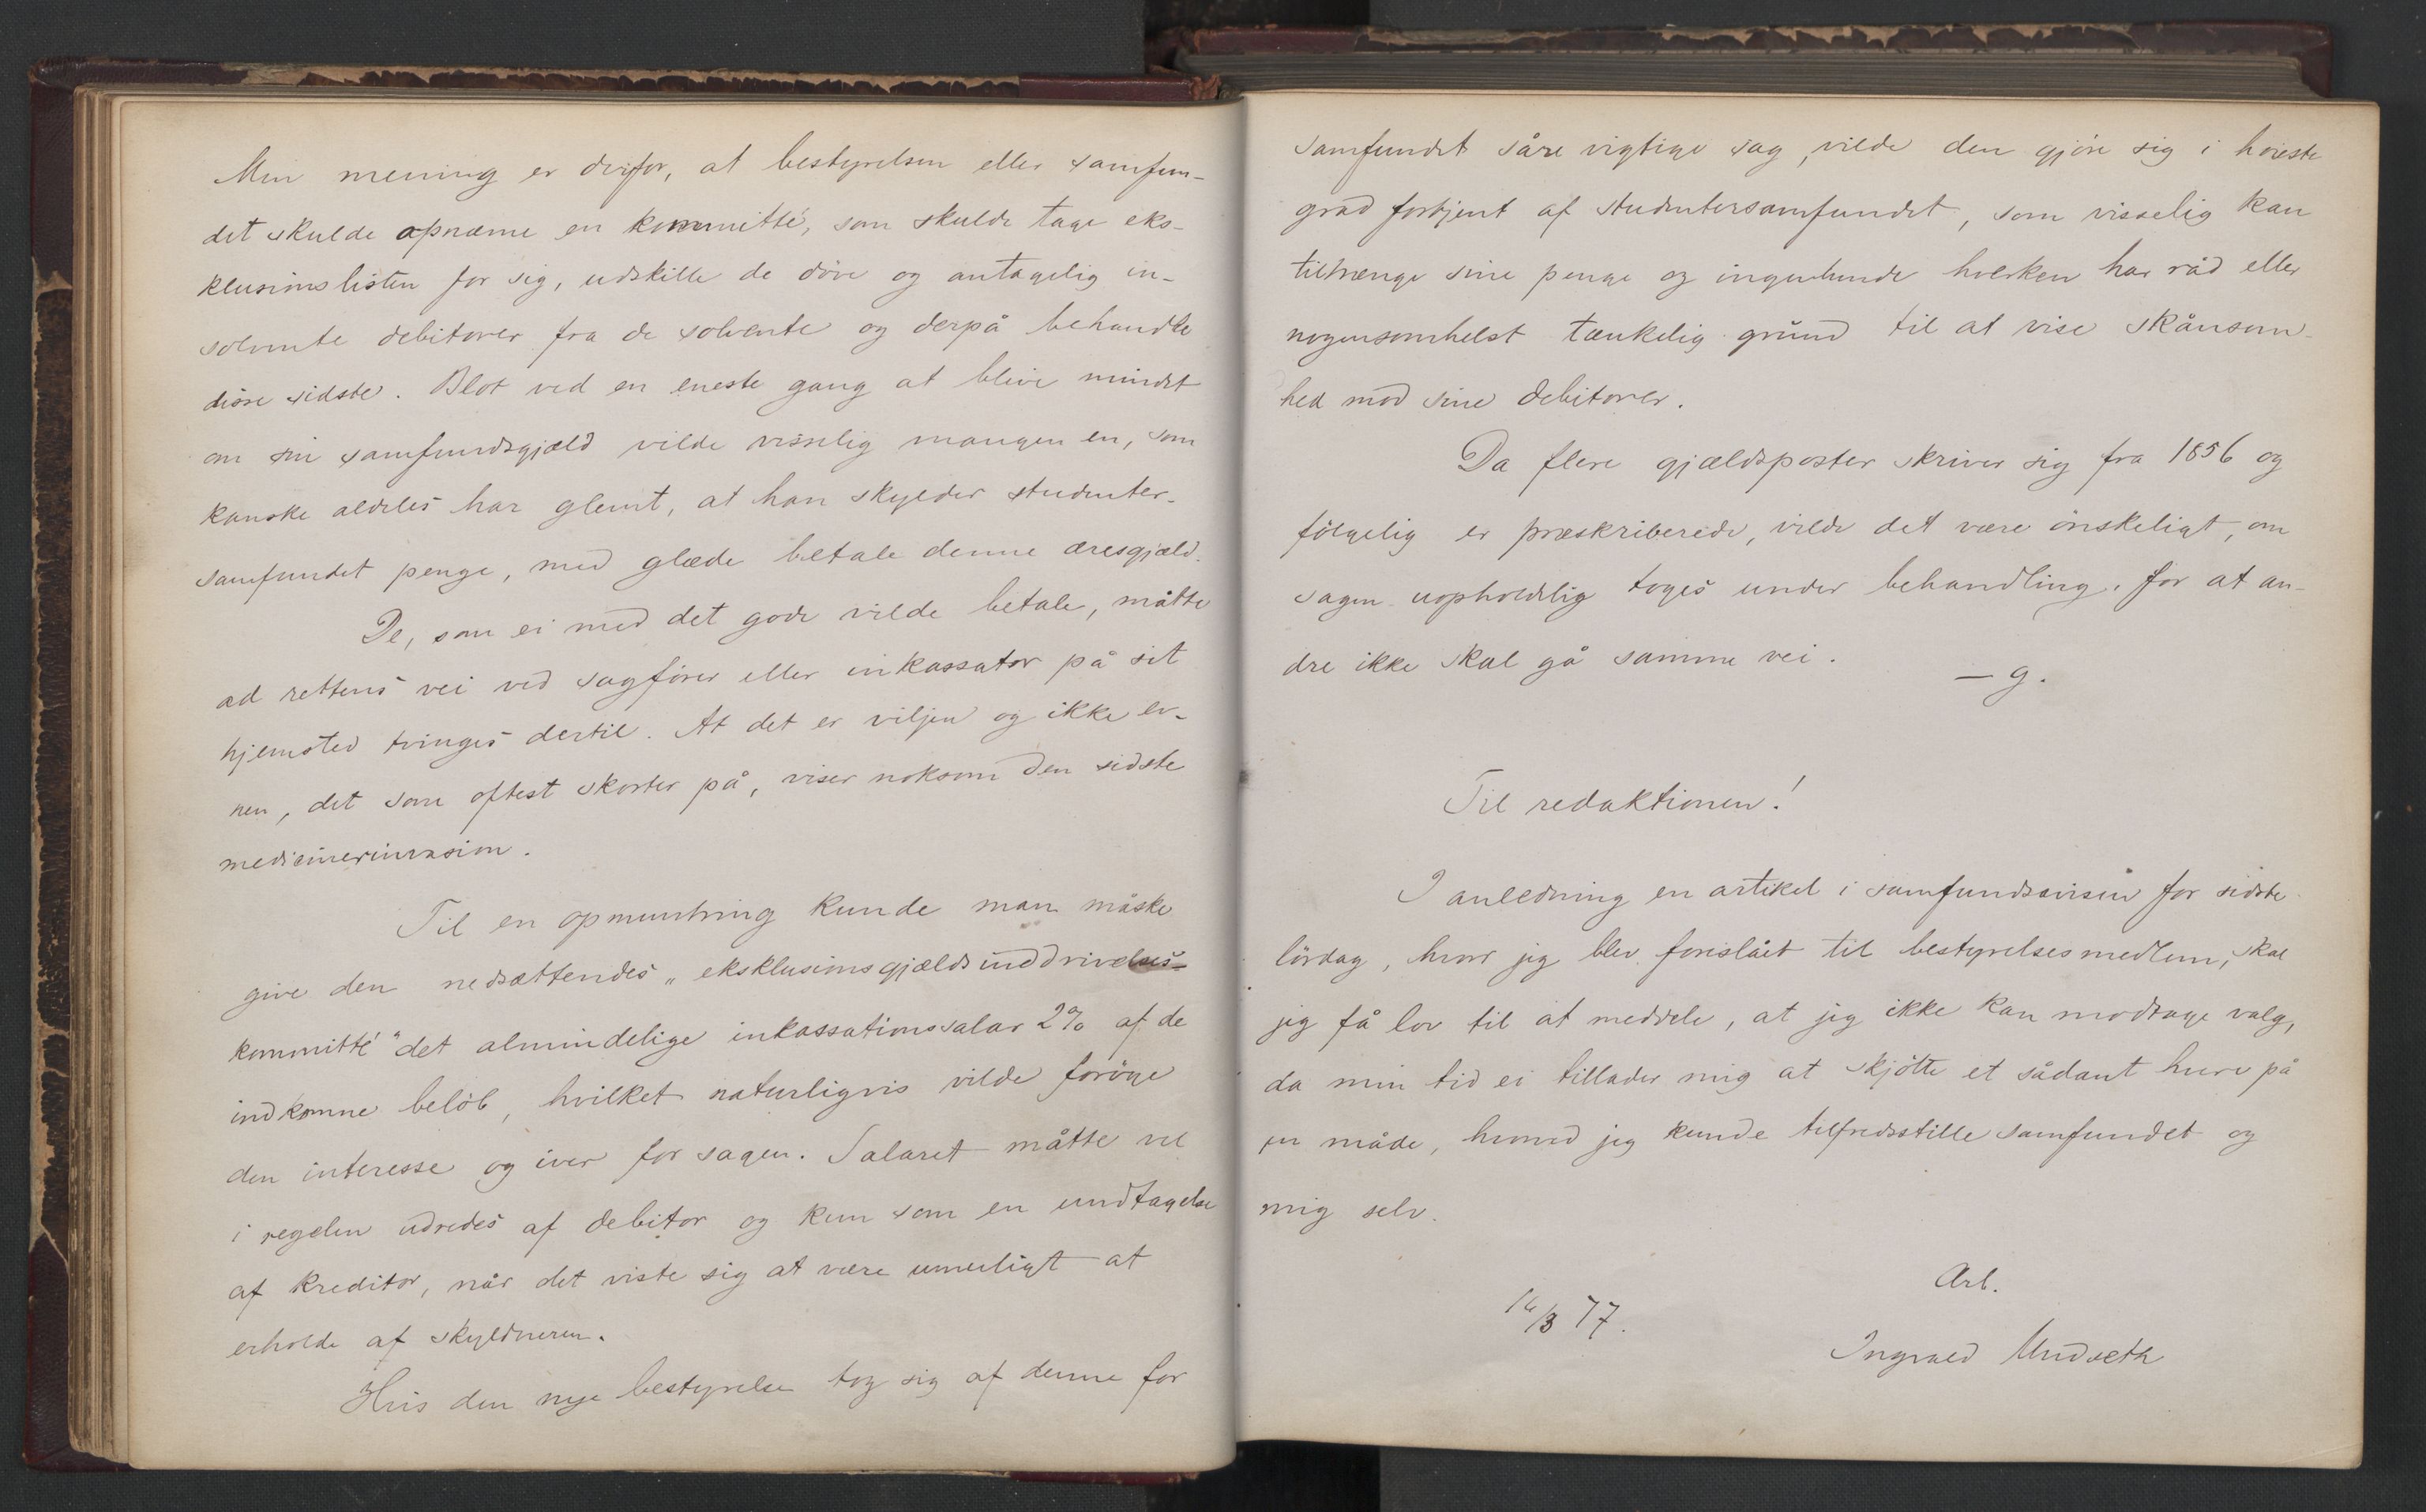 Min mening er derfor, at bestyrelsen eller samfun-
det skulde opnævne en kommitté, som skulde tage eks-
klusionslisten for sig, udskille de döve og antagelig in-
solvente debitorer fra de solvente og derpå behandle
disse sidste. Blot ved en eneste gang at blive mindet
om sin samfundsgjæld vilde visselig mangen en, som
kanske aldeles har glemt, at han skylder studenter-
samfundet penge, med glæde betale denne æresgjæld.
De, som ei med det gode vilde betale, måtte
ad rettens vei ved sagförer eller inkassator på sit
hjemsted tvinges dertil. At det er viljen og ikke ev-
nen, det som oftest skorter på, viser noksom den sidste
medicinerinvasion.
Til en opmuntring kunde man måske
give den nedsættendes "eksklusionsgjældsinddrivelses-
kommitté" det almindelige inkassationssalar 2% af de
indkomne belöb, hvilket naturligvis vilde foröge
den interesse og iver for sagen. Salaret måtte vel
i regelen udredes af debitor og kun som en undtagelse
af kreditor, når det viste sig at være umuligt at
erholde af skyldneren.
Hvis den nye bestyrelse tog sig af denne for
samfundet såre vigtige sag, vilde den gjöre sig i höieste
grad fortjent af studentersamfundet, som visselig kan
tiltrænge sine penge og ingenlunde hverken har råd eller
nogensomhelst tænkelig grund til at vise skånsom-
hed mod sine debitorer.
Da flere gjældsposter skriver sig fra 1856 og
fölgelig er præskriberede, vilde det være önskeligt, om
sagen uopholdelig toges under behandling, for at an-
dre ikke skal gå samme vei.
— g.
Til redaktionen!
I anledning en artikel i samfundsavisen for sidste
lördag, hvor jeg blev foreslået til bestyrelsesmedlem, skal
jeg få lov til at meddele, at jeg ikke kan modtage valg,
da min tid ei tillader mig at skjötte et sådant hverv på
en måde, hvorved jeg kunde tilfredsstille samfundet og
mig selv.
Arb.
/3 77.
Ingvald Undseth